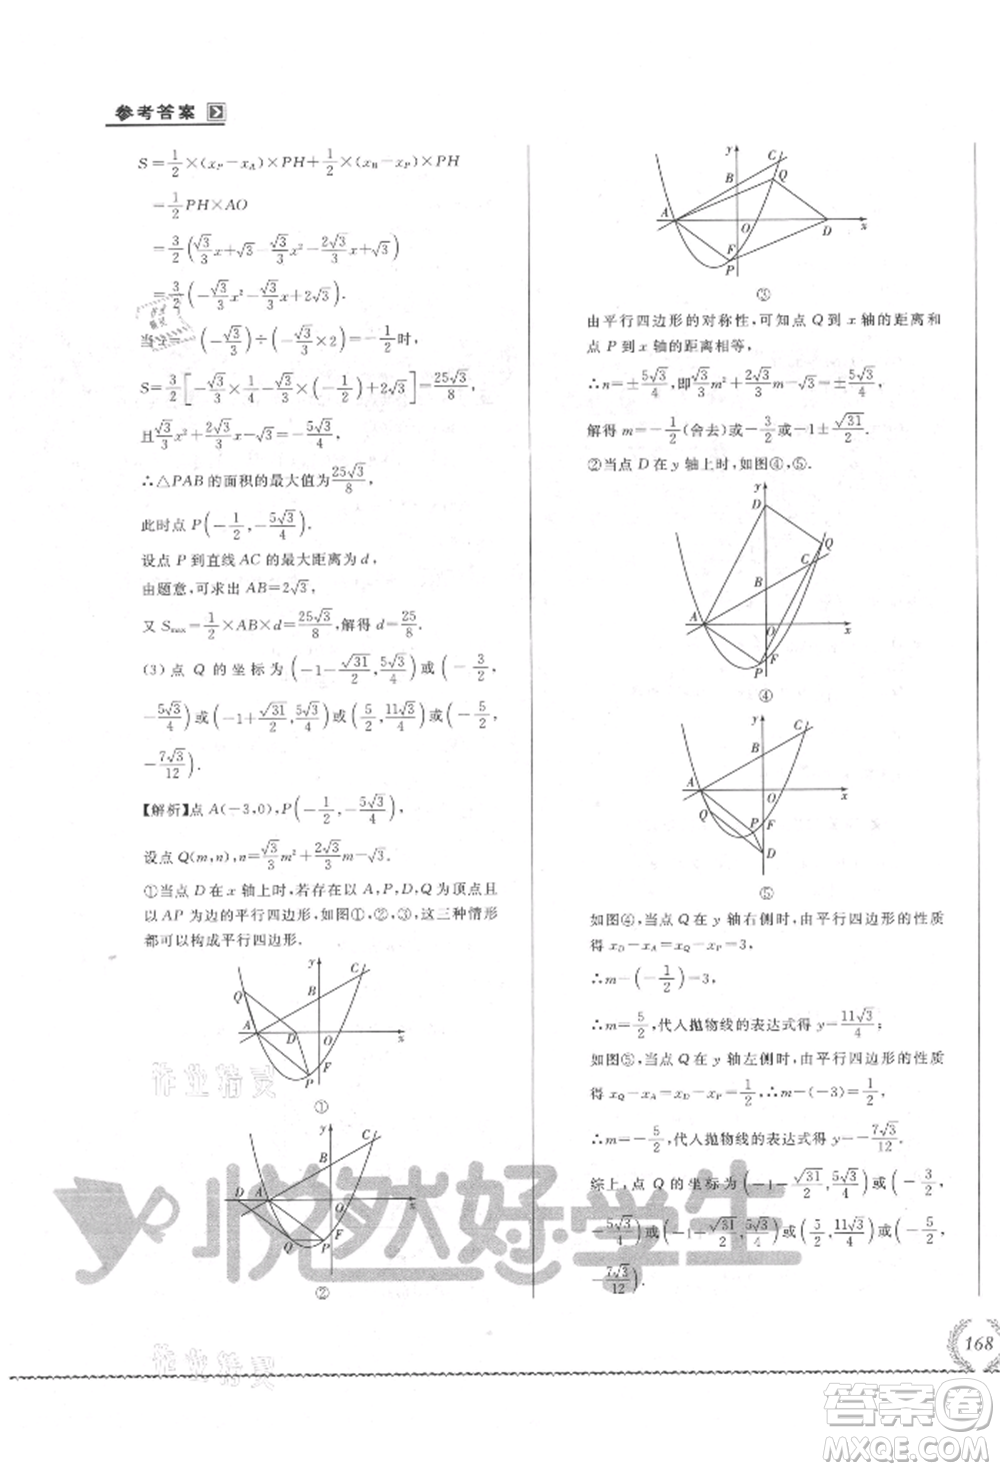 参考答案
S=1/2×(x_P-x_A)×PH+1/2×(x_B-x_P)×PH
=1/2PH×AO
=3/2(√3/3x+√3-√3/3x²-2√3/3x+√3)
=3/2(-√3/3x²-√3/3x+2√3).
当x=-(-√3/3)÷(-√3/3×2)=-1/2时,
S=3/2[-√3/3×1/4-√3/3×(-1/2)+2√3]=25√3/8,
且√3/3x²+2√3/3x-√3=-5√3/4,
∴△PAB的面积的最大值为25√3/8,
此时点P(-1/2,-5√3/4).
设点P到直线AC的最大距离为d,
由题意,可求出AB=2√3,
又S_max=1/2×AB×d=25√3/8,解得d=25/8.
(3)点Q的坐标为(-1-√31/2,5√3/4)或(-3/2,
-5√3/4)或(-1+√31/2,5√3/4)或(5/2,11√3/4)或(-5/2,
-7√3/12).
【解析】点A(-3,0),P(-1/2,-5√3/4),
设点Q(m,n),n=√3/3m²+2√3/3m-√3.
①当点D在x轴上时,若存在以A,P,D,Q为顶点且
以AP为边的平行四边形,如图①,②,③,这三种情形
都可以构成平行四边形.
y
C
Q
B
A
D
O
x
F
P
①
y
C
B
D
A
O
x
F
Q
P
②
y
C
Q
B
A
O
D
x
F
P
③
由平行四边形的对称性,可知点Q到x轴的距离和
点P到x轴的距离相等,
∴n=±5√3/4,即√3/3m²+2√3/3m-√3=±5√3/4,
解得m=-1/2(舍去)或-3/2或-1±√31/2.
②当点D在y轴上时,如图④,⑤.
y
D
Q
C
B
A
O
x
F
P
④
y
C
B
A
O
x
Q
P
F
D
⑤
如图④,当点Q在y轴右侧时,由平行四边形的性质
得x_D-x_A=x_Q-x_P=3,
∴m-(-1/2)=3,
∴m=5/2,代入抛物线的表达式得y=11√3/4;
如图⑤,当点Q在y轴左侧时,由平行四边形的性质
得x_Q-x_A=x_D-x_P=1/2,∴m-(-3)=1/2,
∴m=-5/2,代人抛物线的表达式得y=-7√3/12.
综上,点Q的坐标为(-1-√31/2,5√3/4)或(-3/2,
-5√3/4)或(-1+√31/2,5√3/4)或(5/2,11√3/4)或(-5/2,
-7√3/12).
作业精灵
悦然好学生
作业精灵
168
答案圈
MXQE.COM